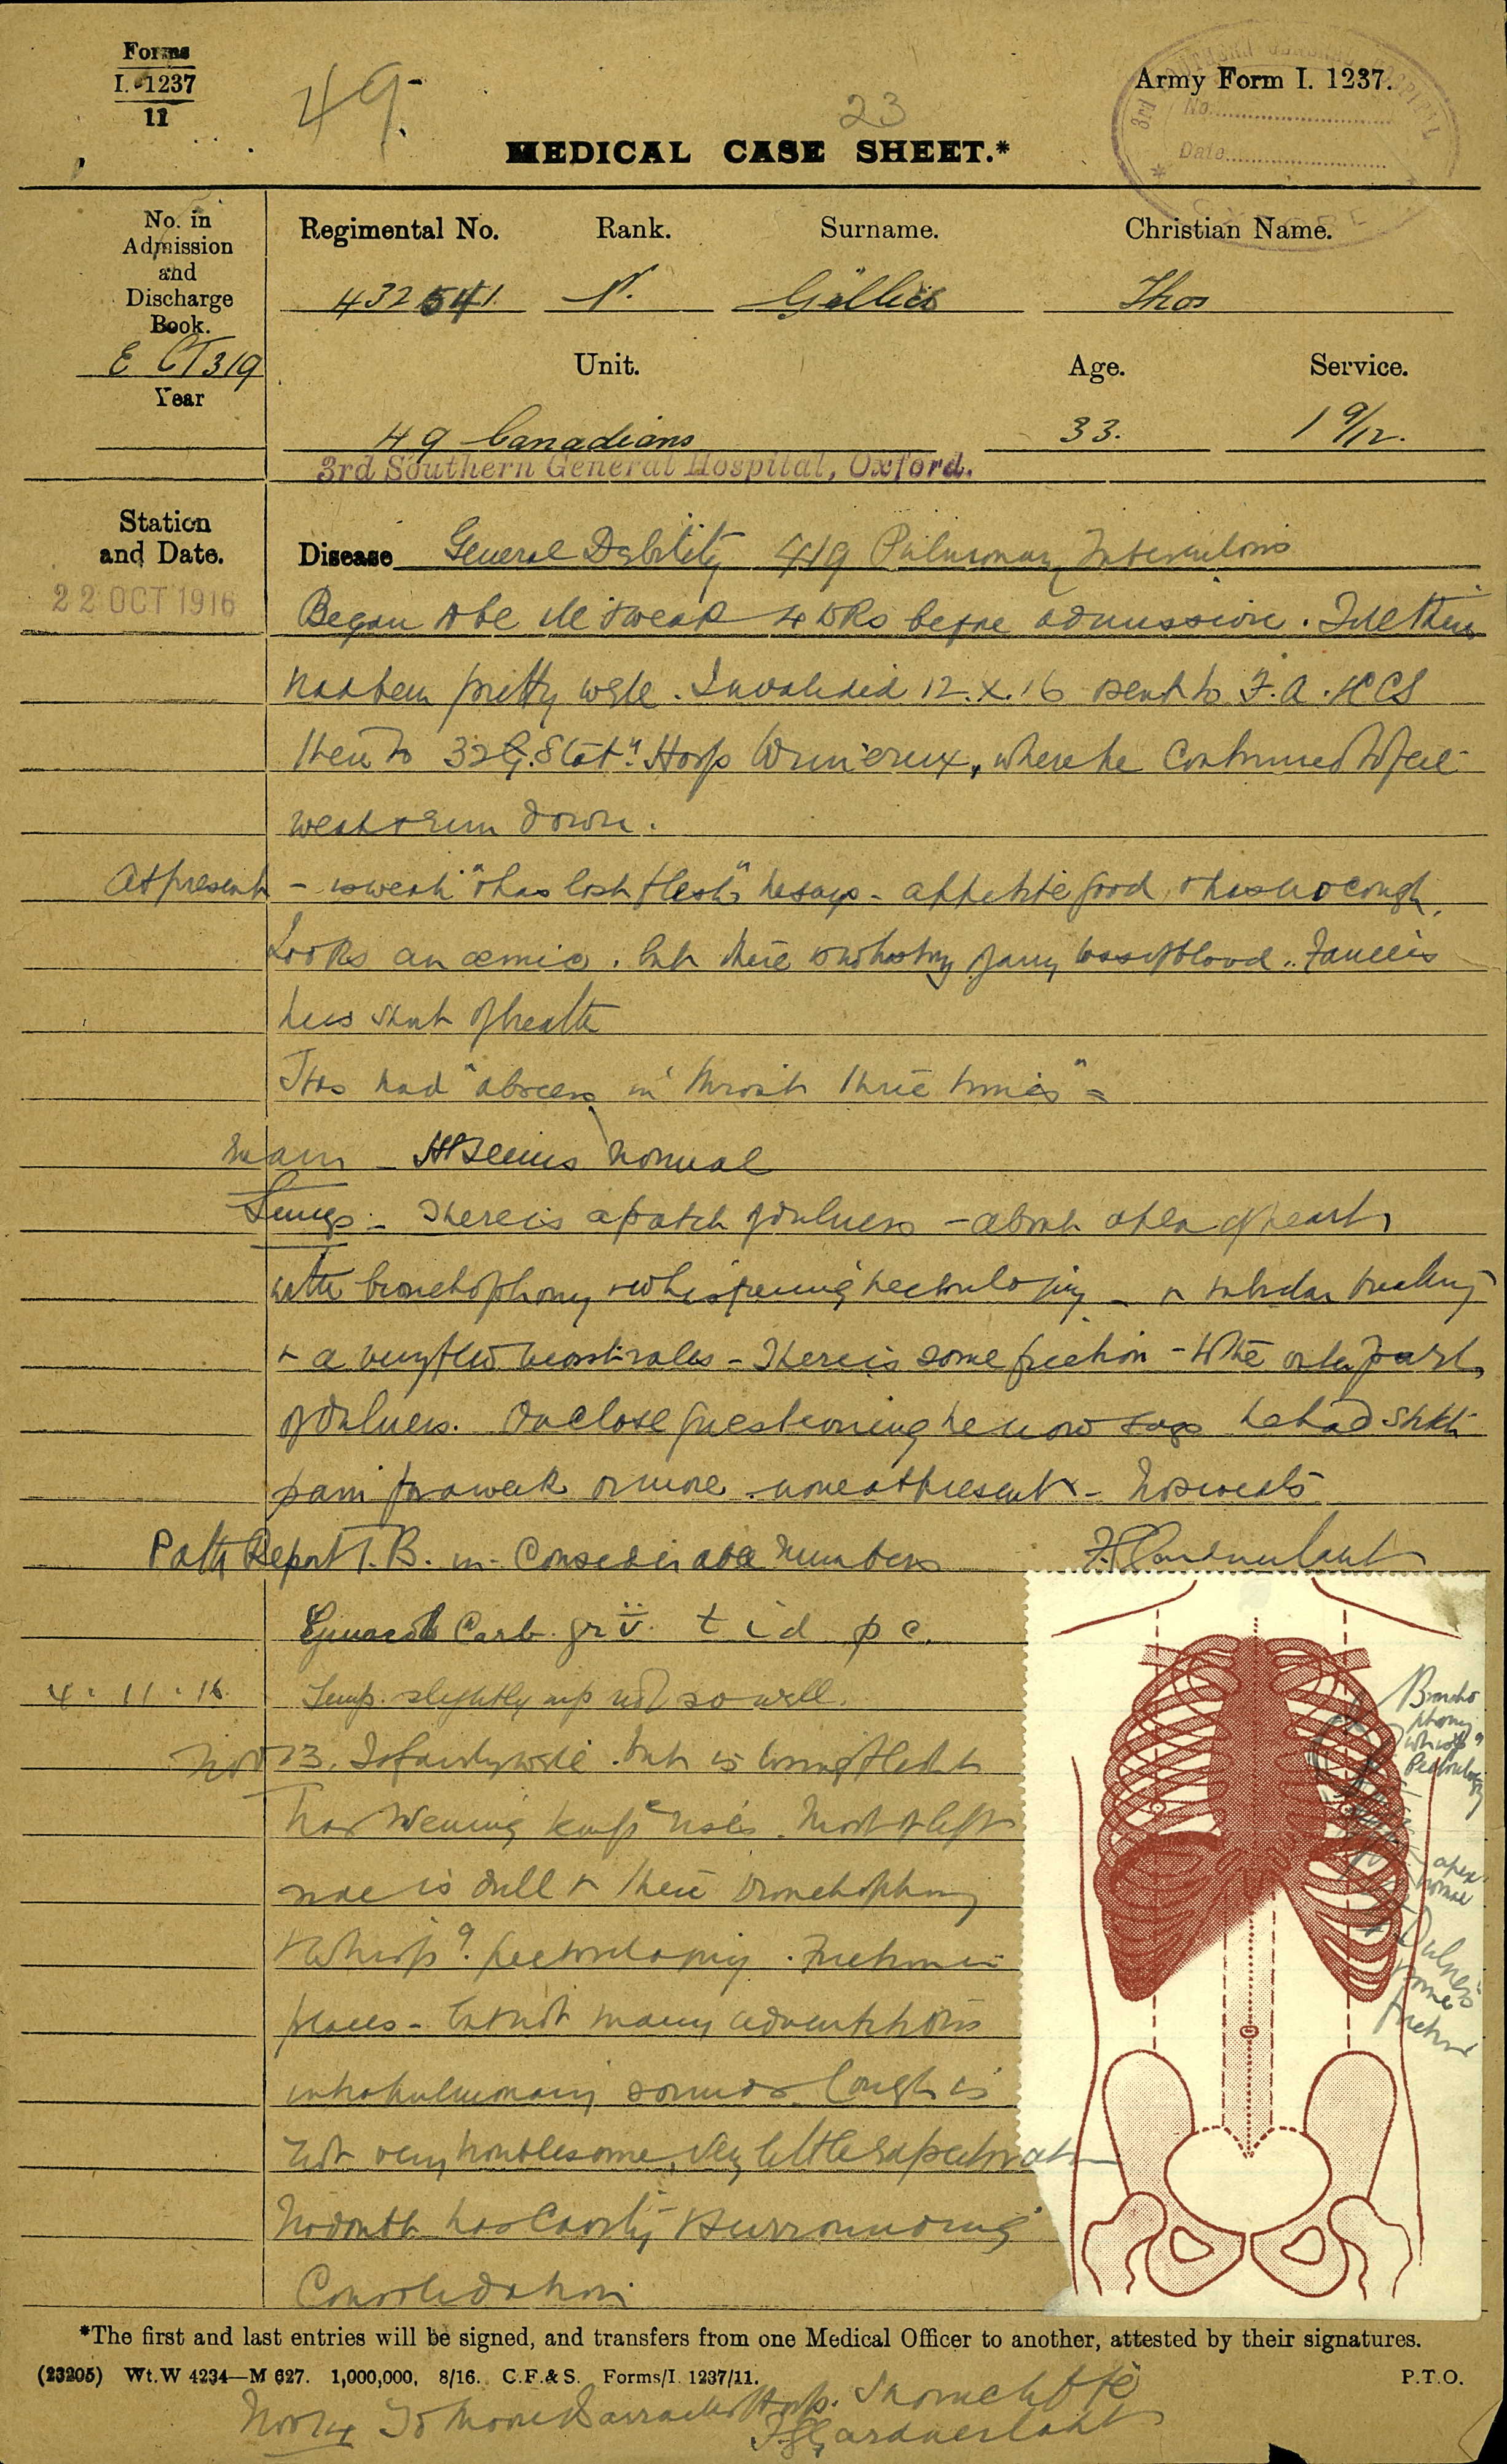 Forms
I. 1237
11
49.
23
Army Form I. 1237.
3rd SOUTHERN GENERAL HOSPITAL
No.
Date
MEDICAL CASE SHEET.*
No. in
Admission
and
Discharge
Book.
E CT319
Year
Regimental No. Rank. Surname. Christian Name.
432541. P. Gillies Thos
Unit. Age. Service.
49 Canadians 33. 1 9/12.
3rd Southern General Hospital, Oxford.
Station
and Date.
22 OCT 1916
Disease General Debility 419 Pulmonary Tuberculosis
Began to be ill & weak 4 wks before admission. Till then
had been pretty well. Invalided 12.X.16 sent to F.A. & CCS
then to 32 Statn. Hosp Wimereux, where he continued to feel
weak & run down.
At present - is weak "& has lost flesh" he says - appetite good & has no cough.
Looks anæmic. but there is no history of any loss of blood. Fancies
he is short of breath
Has had "abscess in throat three times" =
Heart seems normal
Lungs - There is a patch of dulness - about apex of heart,
with bronchophony & whispering pectoriloquy - & tubular breathing
& a very few moist rales - There is some friction - to the outer part
of dulness. On close questioning he now says he had stitch
pain for a week or more none at present - No sweats
Path Report T.B. in Considerable numbers
Guaiacol Carb. gr v. t i d p c.
4. 11. 16. Temp. slightly up not so well.
Nov 13. Is fairly well but is losing flesh &
has evening tempe rises. Most of left
side is dull & there bronchophony
& whispg. pectoriloquy. Friction in
places - but not many adventitious
intrapulmonary sounds. Cough is
not very troublesome, very little expectoration
No doubt has Cavity & surrounding
Consolidation
Broncho
phony
whispg
Pectoriloquy
apex
normal
Dulness
some
friction
*The first and last entries will be signed, and transfers from one Medical Officer to another, attested by their signatures.
(23205) Wt.W 4234—M 627. 1,000,000, 8/16. C.F.& S. Forms/I. 1237/11. P.T.O.
Nov 24 To Moore Barracks Hosp. Shorncliffe